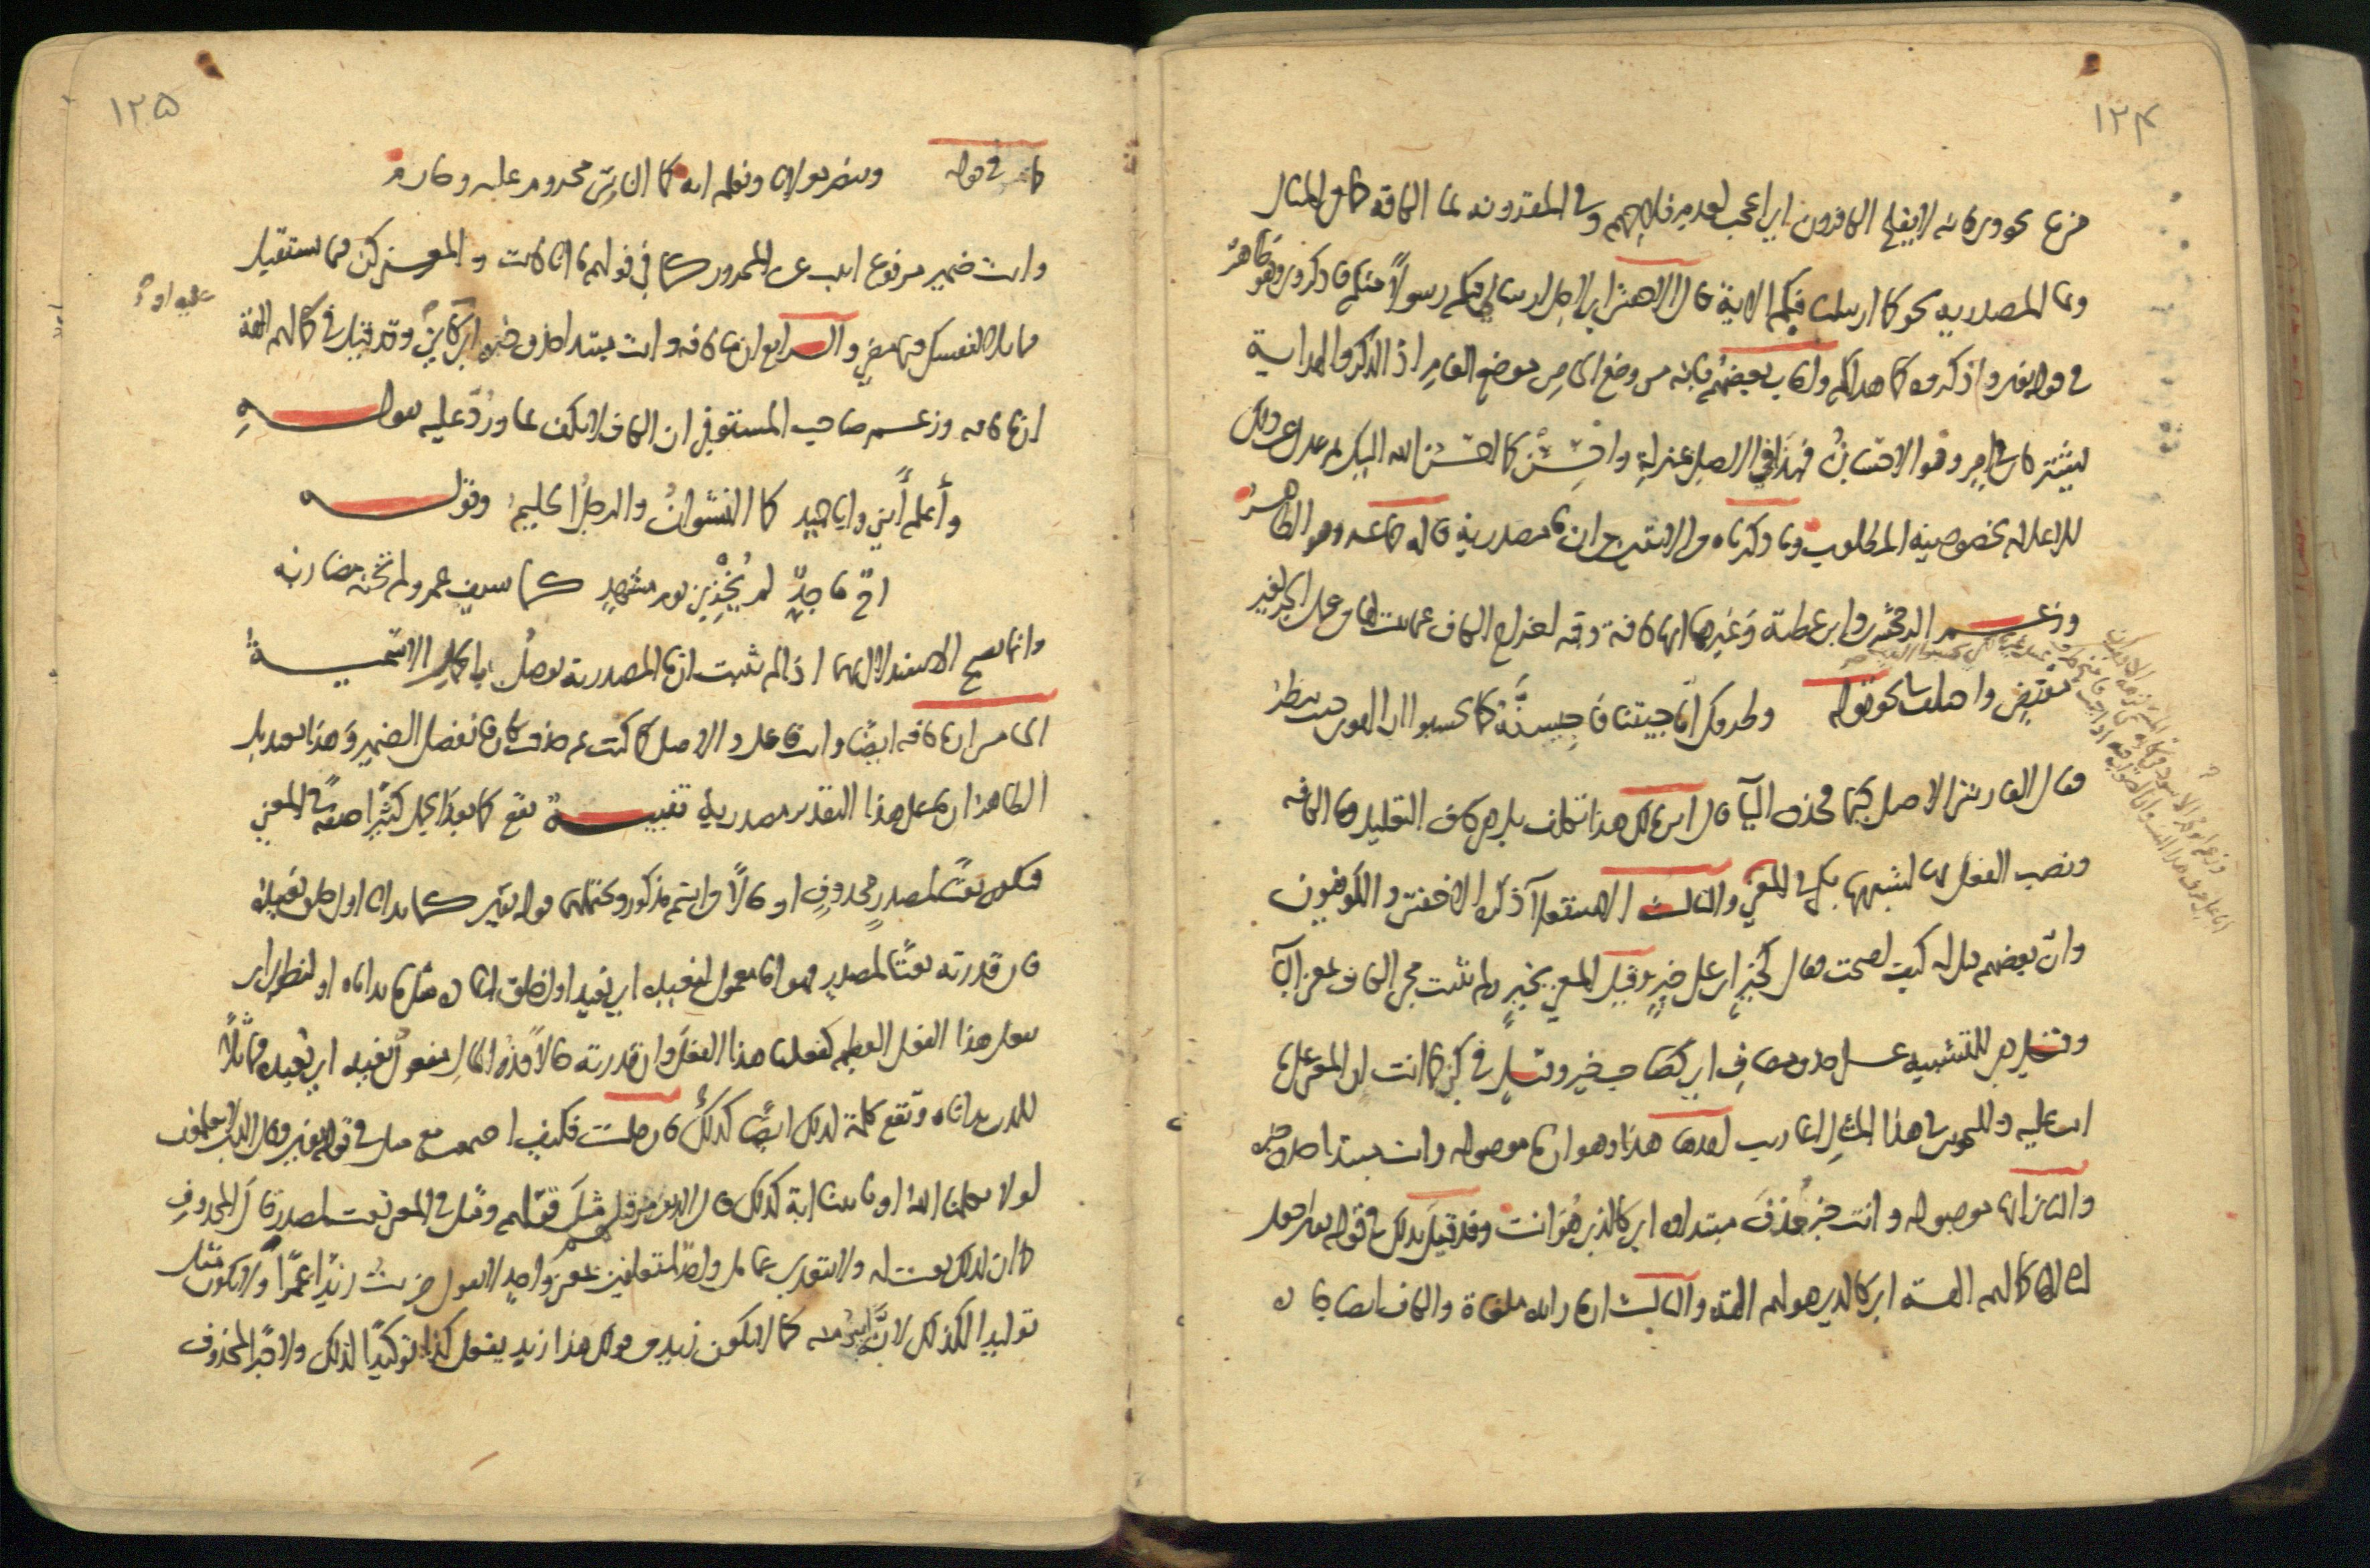 ١٢٤
من ما نحو ويكأنه لا يفلح الكافرون اي اعجب لعدم فلاحهم وفي المقرونة بما الكافة كما في المثال
وبما المصدرية نحو كما ارسلنا فيكم الاية قال الاخفش اي لاجل ارسالي فيكم رسولا منكم فاذكروني وهو ظاهر
في قوله تعالى واذكروه كما هداكم واجاب بعضهم بانه من وضع الخاص موضع العام اذ الذكر والهداية
يشتركان في امر وهو الاحسان فهذا في الاصل بمنزلة واحسن كما احسن الله اليك ثم عدل عن ذلك
للاعلام بخصوصية المطلوب وما ذكرناه في الايتين من ان ما مصدرية قاله جماعة وهو الظاهر
وزعم الزمخشري وابن عطية وغيرهما انها كافة وفيه اخراج الكاف عما ثبت لها من عمل الجر لغير
مقتض واختلف في نحو قوله وطرفك اما جئتنا فاحبسنه كما يحسبوا ان الهوى حيث تنظر
فقال الفارسي الاصل كيما فحذف اليا وقال ابن مالك هذا تكلف بل هي كاف التعليل وما الكافة
ونصب الفعل بها لشبهها بكي في المعنى والثالث الاستعلا ذكره الاخفش والكوفيون
وان بعضهم قيل له كيف اصبحت فقال كخير اي على خير وقيل المعنى بخير ولم يثبت مجي الكاف بمعنى البا
وقيل هي للتشبيه على حذف مضاف اي كصاحب خير وقيل في كن كما انت ان المعنى على ما
انت عليه وللنحويين في هذا المثال اعاريب احدها هذا وهو ان ما موصولة وانت مبتدا حذف خبره
والثاني انها موصولة وانت خبر حذف مبتداه اي كالذي هو انت وقد قيل بذلك في قوله تعالى اجعل
لنا الها كما لهم الهة اي كالذي هو لهم الهة والثالث ان ما زايدة ملغاة والكاف ايضا جارة
١٢٥
كما في قوله وننصر مولانا ونعلم انه كما الناس مجروم عليه وجارم
وانت ضمير مرفوع انيب عن المجرور كما في قولهم ما انا كانت والمعنى كن فيما يستقبل
مماثلا لنفسك فيما مضى والرابع ان ما كافة وانت مبتدا حذف خبره اي كاين وقد قيل في كما لهم الهة
ان ما كافة وزعم صاحب المستوفى ان الكاف لا تكف بما ورد عليه بقوله
وأعلم أنني وابا حميد كما النشوان والرجل الحليم وقوله
اخ ماجد لم يخزني يوم مشهد كما سيف عمرو لم تخنه مضاربه
وانما يصح الاستدلال بهما اذا لم يثبت ان ما المصدرية توصل بالجملة الاسمية
الخامس ان ما كافة ايضا وانت فاعل والاصل كما كنت ثم حذف كان فانفصل الضمير وهذا بعيد بل
الظاهر ان ما على هذا التقدير مصدرية تنبيه تقع كما بعد الجمل كثيرا صفة في المعنى
فتكون نعتا لمصدر محذوف او حالا من اسم مذكور ويحتملهما قوله تعالى كما بدانا اول خلق نعيده
فان قدرته نعتا لمصدر فهو اما معمول لنعيده اي نعيد اول خلق اعادة مثل ما بداناه او لنطوي اي
نفعل هذا الفعل العظيم كفعلنا هذا الفعل وان قدرته حالا فذو الحال مفعول نعيده اي نعيده مماثلا
للذي بداناه وتقع كلمة كذلك ايضا كذلك فان قلت فكيف اجتمعت مع مثل في قوله تعالى وقال الذين لا يعلمون
لولا يكلمنا الله او تاتينا اية كذلك قال الذين من قبلهم مثل قولهم ومثل في المعنى نعت لمصدر قال المحذوف
كما ان كذلك نعت له ولا يتعدى عامل واحد لمتعلقين بمعنى واحد لا تقول ضربت زيدا عمرا ولا يكون مثل
توكيدا لكذلك لانه ابين منه كما لا يكون زيد من قولك هذا زيد يفعل كذا توكيدا لذلك ولا خبرا لمحذوف